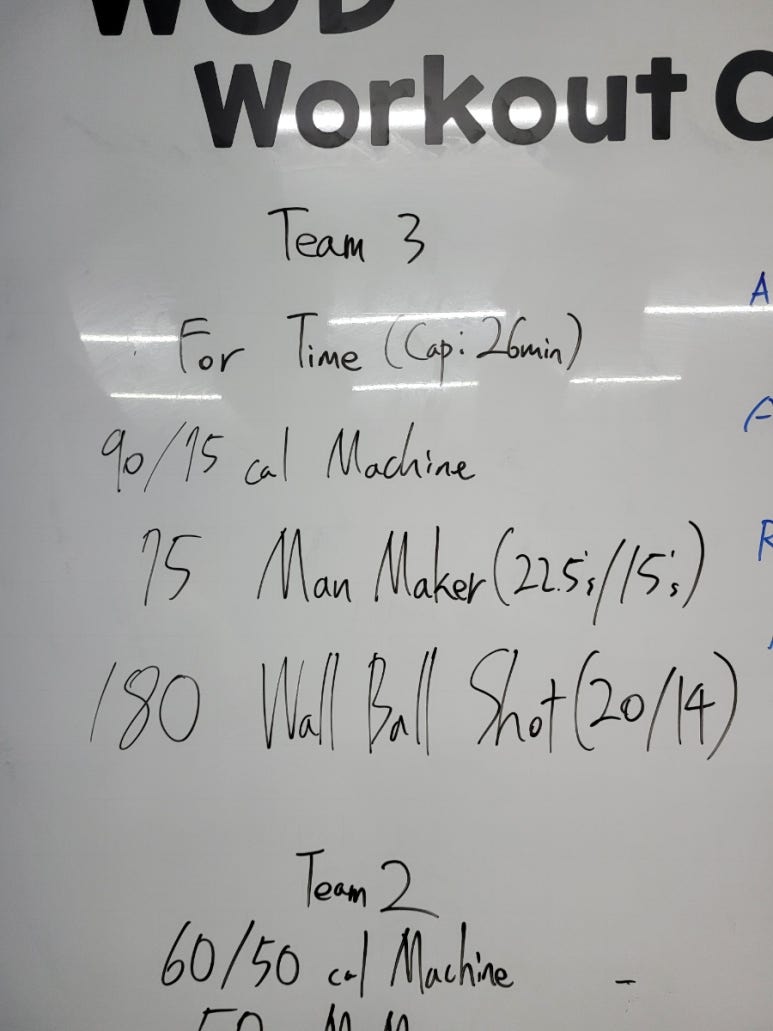 WOD
Workout
Team 3
For Time (Cap: 26min)
90/75 cal Machine
75 Man Maker (22.5's/15's)
180 Wall Ball Shot (20/14)
Team 2
60/50 cal Machine
50